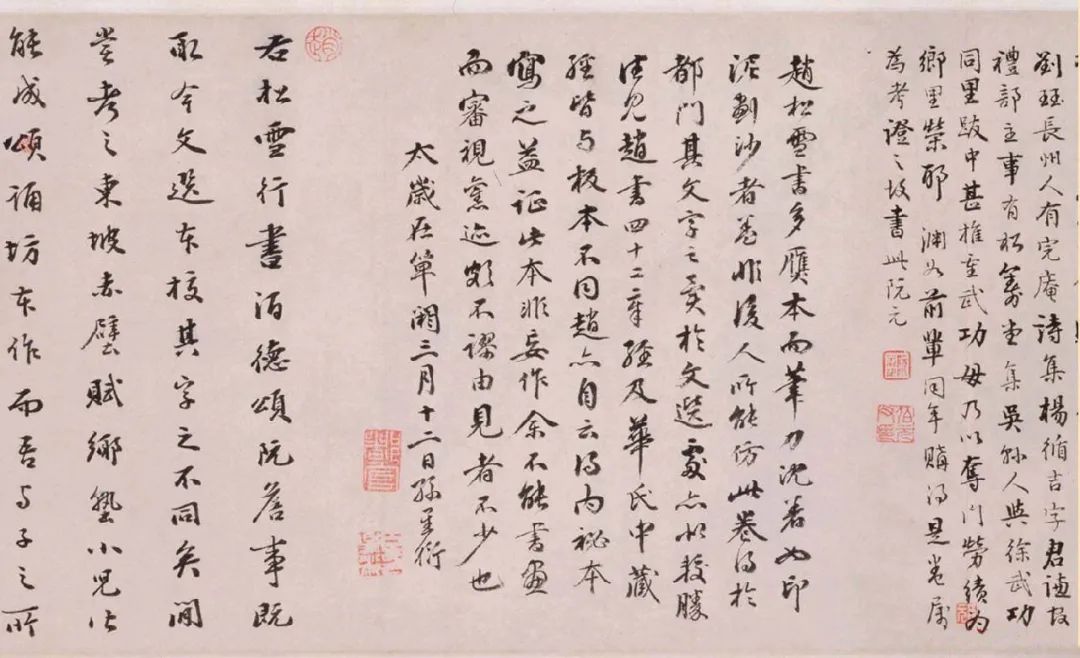 劉珏長洲人有完庵詩集楊循吉字君謙故
禮部主事有松壽堂集吳縣人與徐武功
同里跋中甚推重武功毋乃以奪門勞績為
鄉里榮耶淵如前輩同年購得是卷屬
為考證之故書此阮元
趙松雪書多贋本而筆力沈著如印
泥劃沙者卷非後人所能仿此卷得於
都門其文字之異於文選處亦以校勝
法見趙書四十二章經及華氏中藏
經皆与板本不同趙亦自云得內祕本
寫之益証此本非妄作余不能書畫
而審視舊迹頗不謬由見者不少也
太歲在單閼三月十二日孫星衍
右松雪行書酒德頌阮詹事既
取今文選本校其字之不同矣間
嘗考之東坡赤壁賦鄉塾小兒皆
能成頌誦坊本作而吾与子之所